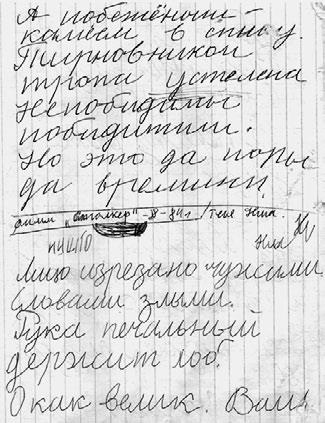 А побежённый –
камнем в спину.
Тирновником
тропа устелена
Непобидимы
победители.
Но это да поры
да времини
филм "Сталкер" -II- 84г. / Теме Ния.
Ния
Лицо изрезано чужими
словами злыми.
Рука печальный
держит лоб.
О как велик. Ваш